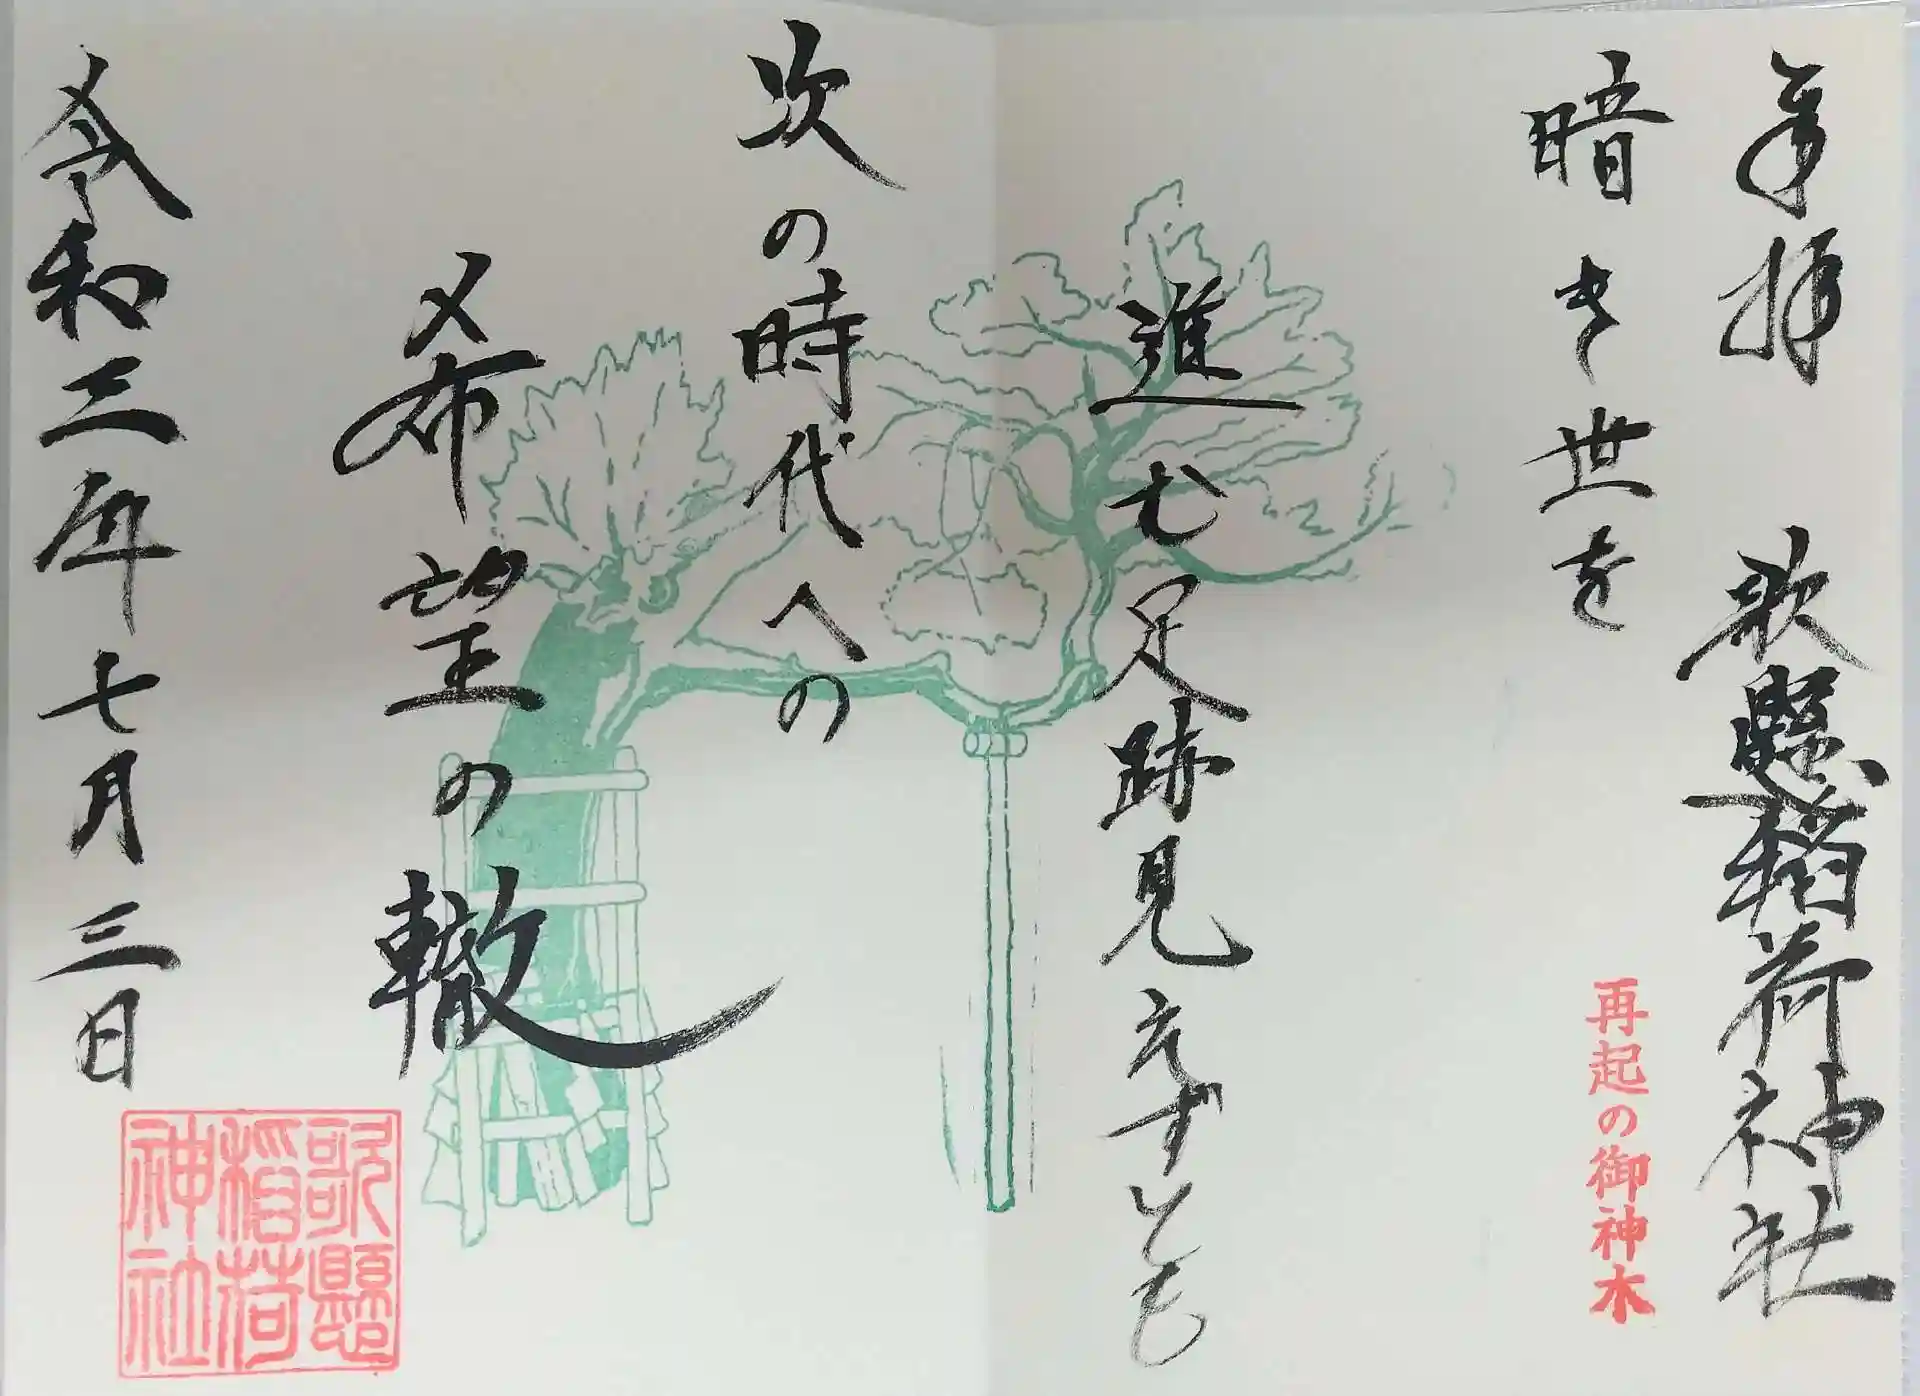 奉拝 歌懸稲荷神社
暗き世を
再起の御神木
進む足跡見えずとも
次の時代への
希望の轍
令和三年七月三日
歌懸
稲荷
神社